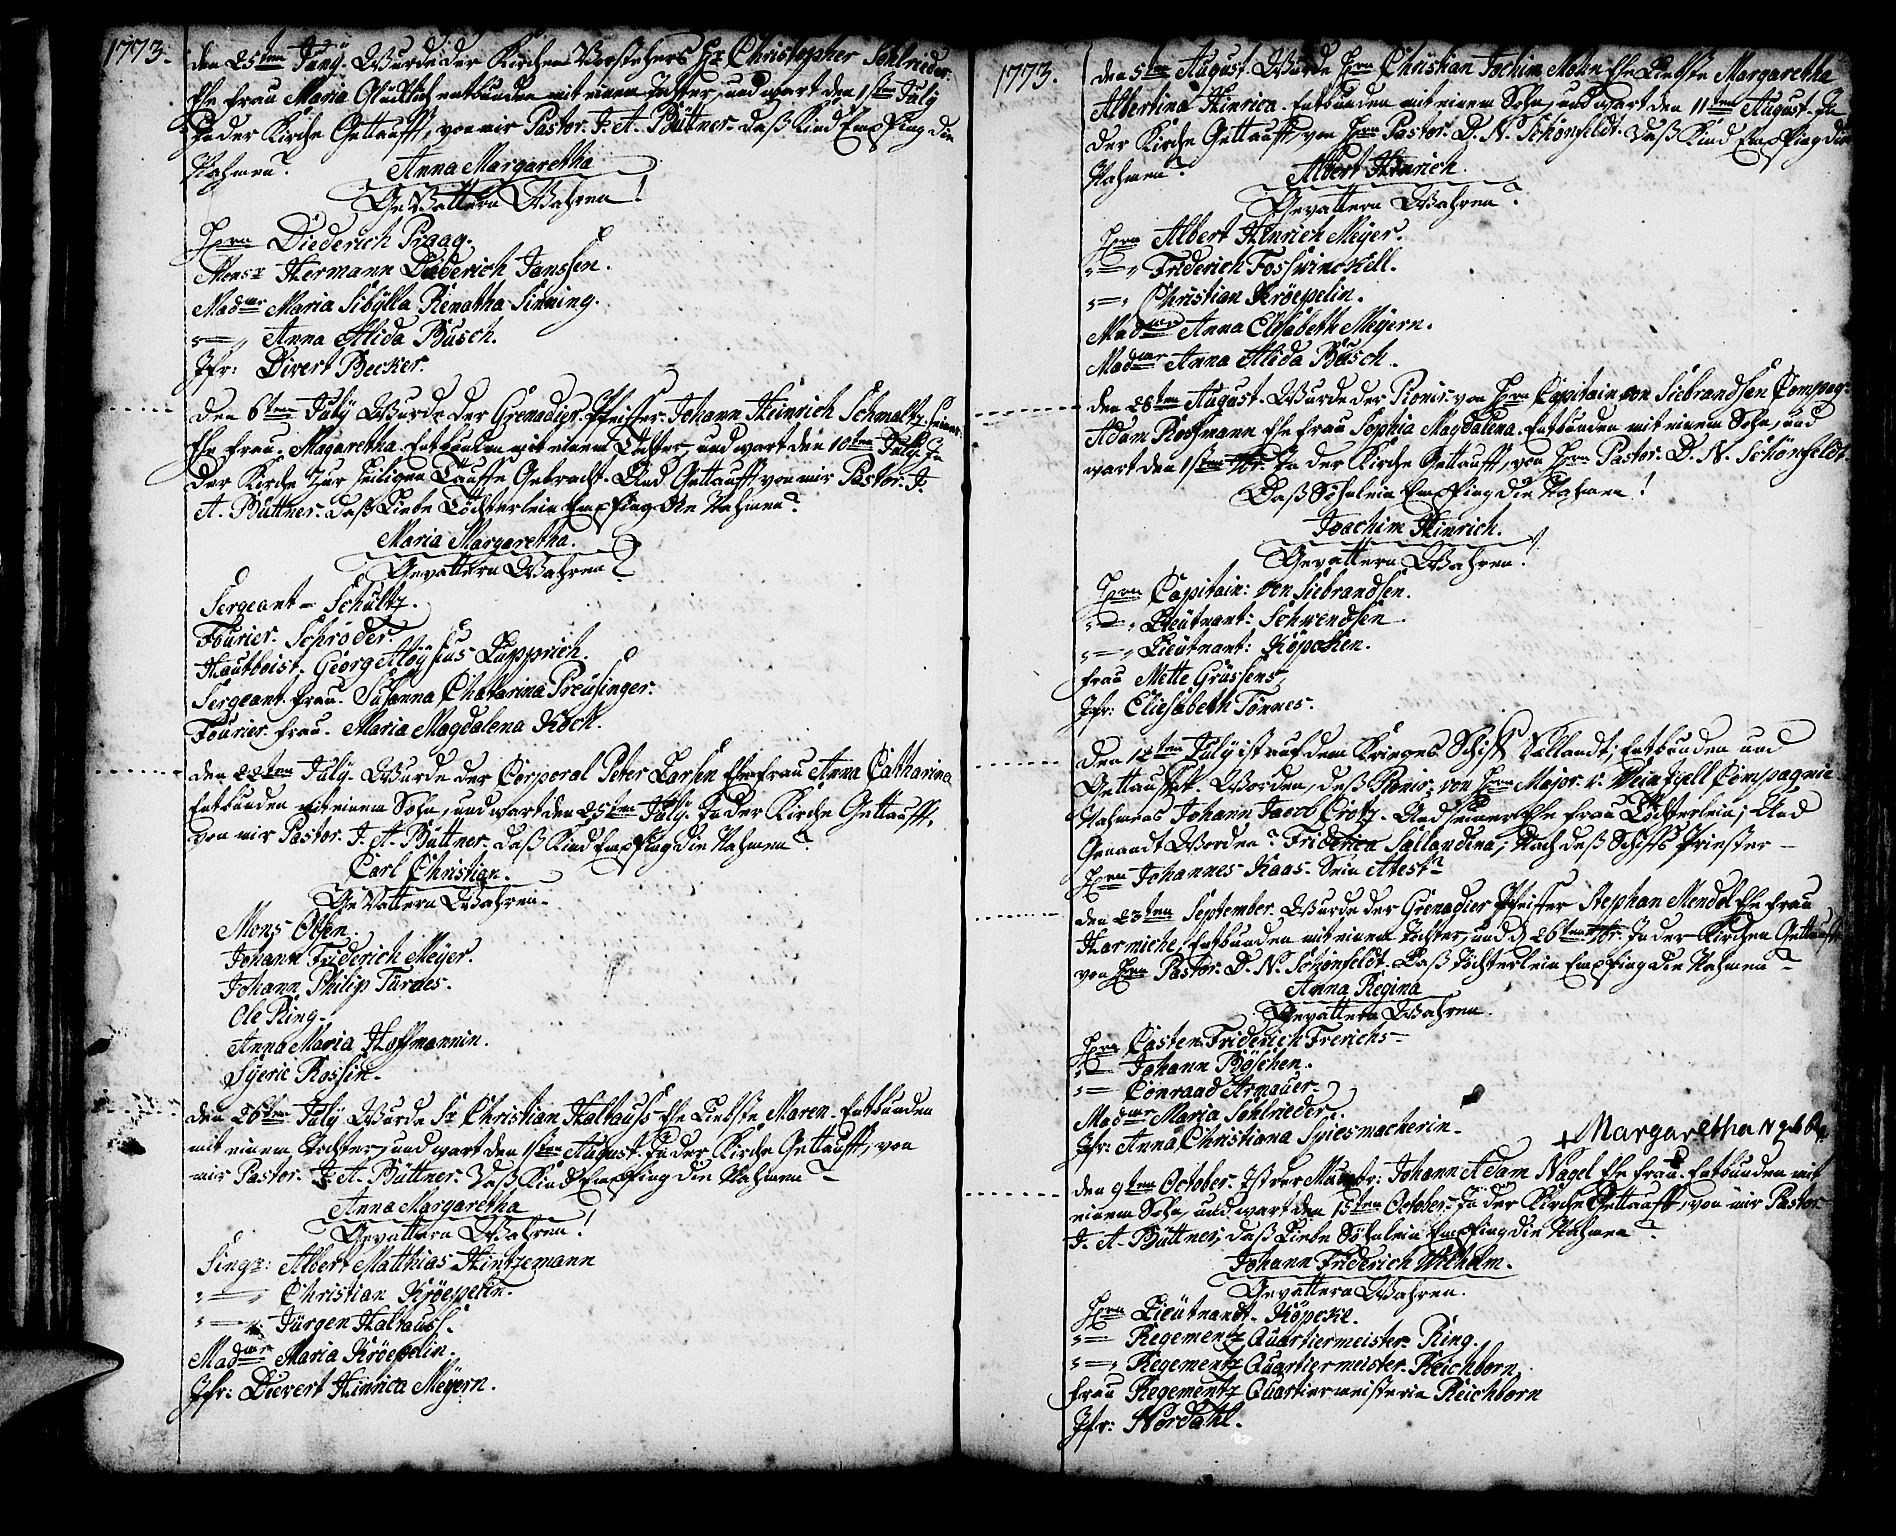 1773.
den 25ten Juny. Wurde der Kirchen Vorstehers Hr. Christopher Sohlrieder.
Ehe frau Maria Glücklich entbunden mit einem Tochter, und wart den 1sten July
In der Kirche Gettaufft, von mir Pastor. J. A. Büttner. Daß Kind Empfing die
Nahmen?
Anna Margaretha
GeVattern Wahren!
Hrrn Diederich Praag.
Monsr Hermann Diederich Janssen.
Madme Maria Sibÿlla Renatha Sinning.
" = " Anna Alida Büsch.
Jfr: Divert Becker.
Den 6ten July Wurde der Grenadier-Pfeiffer Johann Heinrich Schmaltz, seiner
Ehe frau. Magaretha. Entbunden mit einem Tochter, und wart den 10ten July. In
der Kirche Zur Heiligen Tauffe Gebracht. Und Gettaufft von mir Pastor. J.
A. Büttner. Daß Liebe Töchterlein Empfing die Nahmen?
Maria Margaretha.
Gevattern Wahren
Sergeant = Schültz.
Fourier. Schröder.
Hautboist, Georg Aloÿsius Lüpprich.
Sergeant. frau. Susanna Chatarina Preusinger.
Fourier frau. Maria Magdalena Koch.
den 22ten July. Wurde der Corporal Peter Larsen Ehe frau Anna Catharina
Entbunden mit einem Sohn, und wart den 25ten July. In der Kirche Gettaufft.
von mir Pastor. J. A. Büttner. Daß Kind Empfing die Nahmen?
Carl Christian.
GeVattern Wahren.
Mons Olsen.
Johann Friderich Meÿer.
Johann Philip Türnes.
Ole Ring.
Anna Maria Hoffmannin.
Syeric Rossin.
den 26ten July Wurde Sr Christian Haltauss Ehe Liebste Maren. Entbunden
mit einem Tochter, und wart den 1sten August. In der Kirche Gettaufft, von
mir Pastor. J. A. Büttner. Daß Kind Empfing die Nahmen
Anna Margaretha
Gevattern Wahren!
Singr: Albert Matthias Hintzemann
" = " Christian Kröepelin.
" = " Jürgen Haltauss.
Madme Maria Kröepelin.
Jfr: Dievert Hinrica Meÿern.
1773.
den 5ten August. Wurde Hrrn Christian Jochim Mohn Ehe Liebste Margaretha
Albertina Hinrica. Entbunden mit einem Sohn, und wart den 11ten August. In
der Kirche Gettaufft, von Hrrn Pastor. D. N. Schönfeldt. Daß Kind Empfing die
Nahmen?
Albert Hinrich.
Gevattern Wahren?
Hrrn Albert Hinrich Meÿer.
" = " Friderich Fosswinckell.
" = " Christian Kröepelin.
Madme Anna Elisabeth Meÿern.
Madme Anna Alida Büsch.
den 28ten August. Wurde der Pionir von Hrrn Capitain von Siebrandsen Compag:
Adam Roofmann Ehe frau Sophia Magdalena. Entbunden mit einem Sohn, und
wart den 1sten 7br. In der Kirche Gettaufft, von Hrrn Pastor. D. N. Schönfeldt.
Daß Söhnlein Empfing die Nahmen!
Joachim Hinrich.
Gevattern Wahren!
Hrrn Capitain: von Siebrandsen.
" = " Lieutnant: Schwendsen.
" = " Lieutnant: Köpcken.
frau Mette Grüssens,
Jfr: Eliesabeth Tönnes.
Den 12ten July ist auf dem Krieges Schiff Sallandt, Entbunden und
Gettaufft. Worden, deß Pionir, von Hrrn Major. v. Weintzell Compagnie.
Nahmens Johann Jacob Crotz. Und seiner Ehe frau Töchterlein, Und
Genandt Worden? Friderica Sallandina, Nach deß Schiffs Priester
Hrrn Johannes Kaas. Sein Atest?
den 23ten September. Wurde der Grenadier Pfeiffer Stephan Mendel Ehe frau
Harmiche, Entbunden mit einem Tochter, und d 26ten 7br. In der Kirchen Gettaufft
von Hrrn Pastor. D. N. Schönfeldt. Daß Töchterlein Empfing die Nahmen
Anna Regina
Gevattern Wahren.
Hrrn Casten Friderich Frerichs
" = Johann Böschen.
" = Conraad Armauer.
Madme Maria Sohlrieder.
Jfr: Anna Christiana Spiesmacherin.
+ Margaretha
den 9ten October. Ist der Johann Adam Nagel Ehe frau + Entbunden mit
einem Sohn, und wart den 15ten October. In der Kirche Gettaufft, von mir Pastor
J. A. Büttner, daß Liebe Söhnlein Empfing die Nahmen?
Johann Friderich Wilhelm.
Gevattern Wahren.
Hrrn Lieutnandt. Köpcke.
" = Regementz Quartiermeister. Ring.
" = " Regementz Quartiermeister. Reichborn.
frau Regementz Quartiermeisterin Reichborn
Jfr: Nordahl.